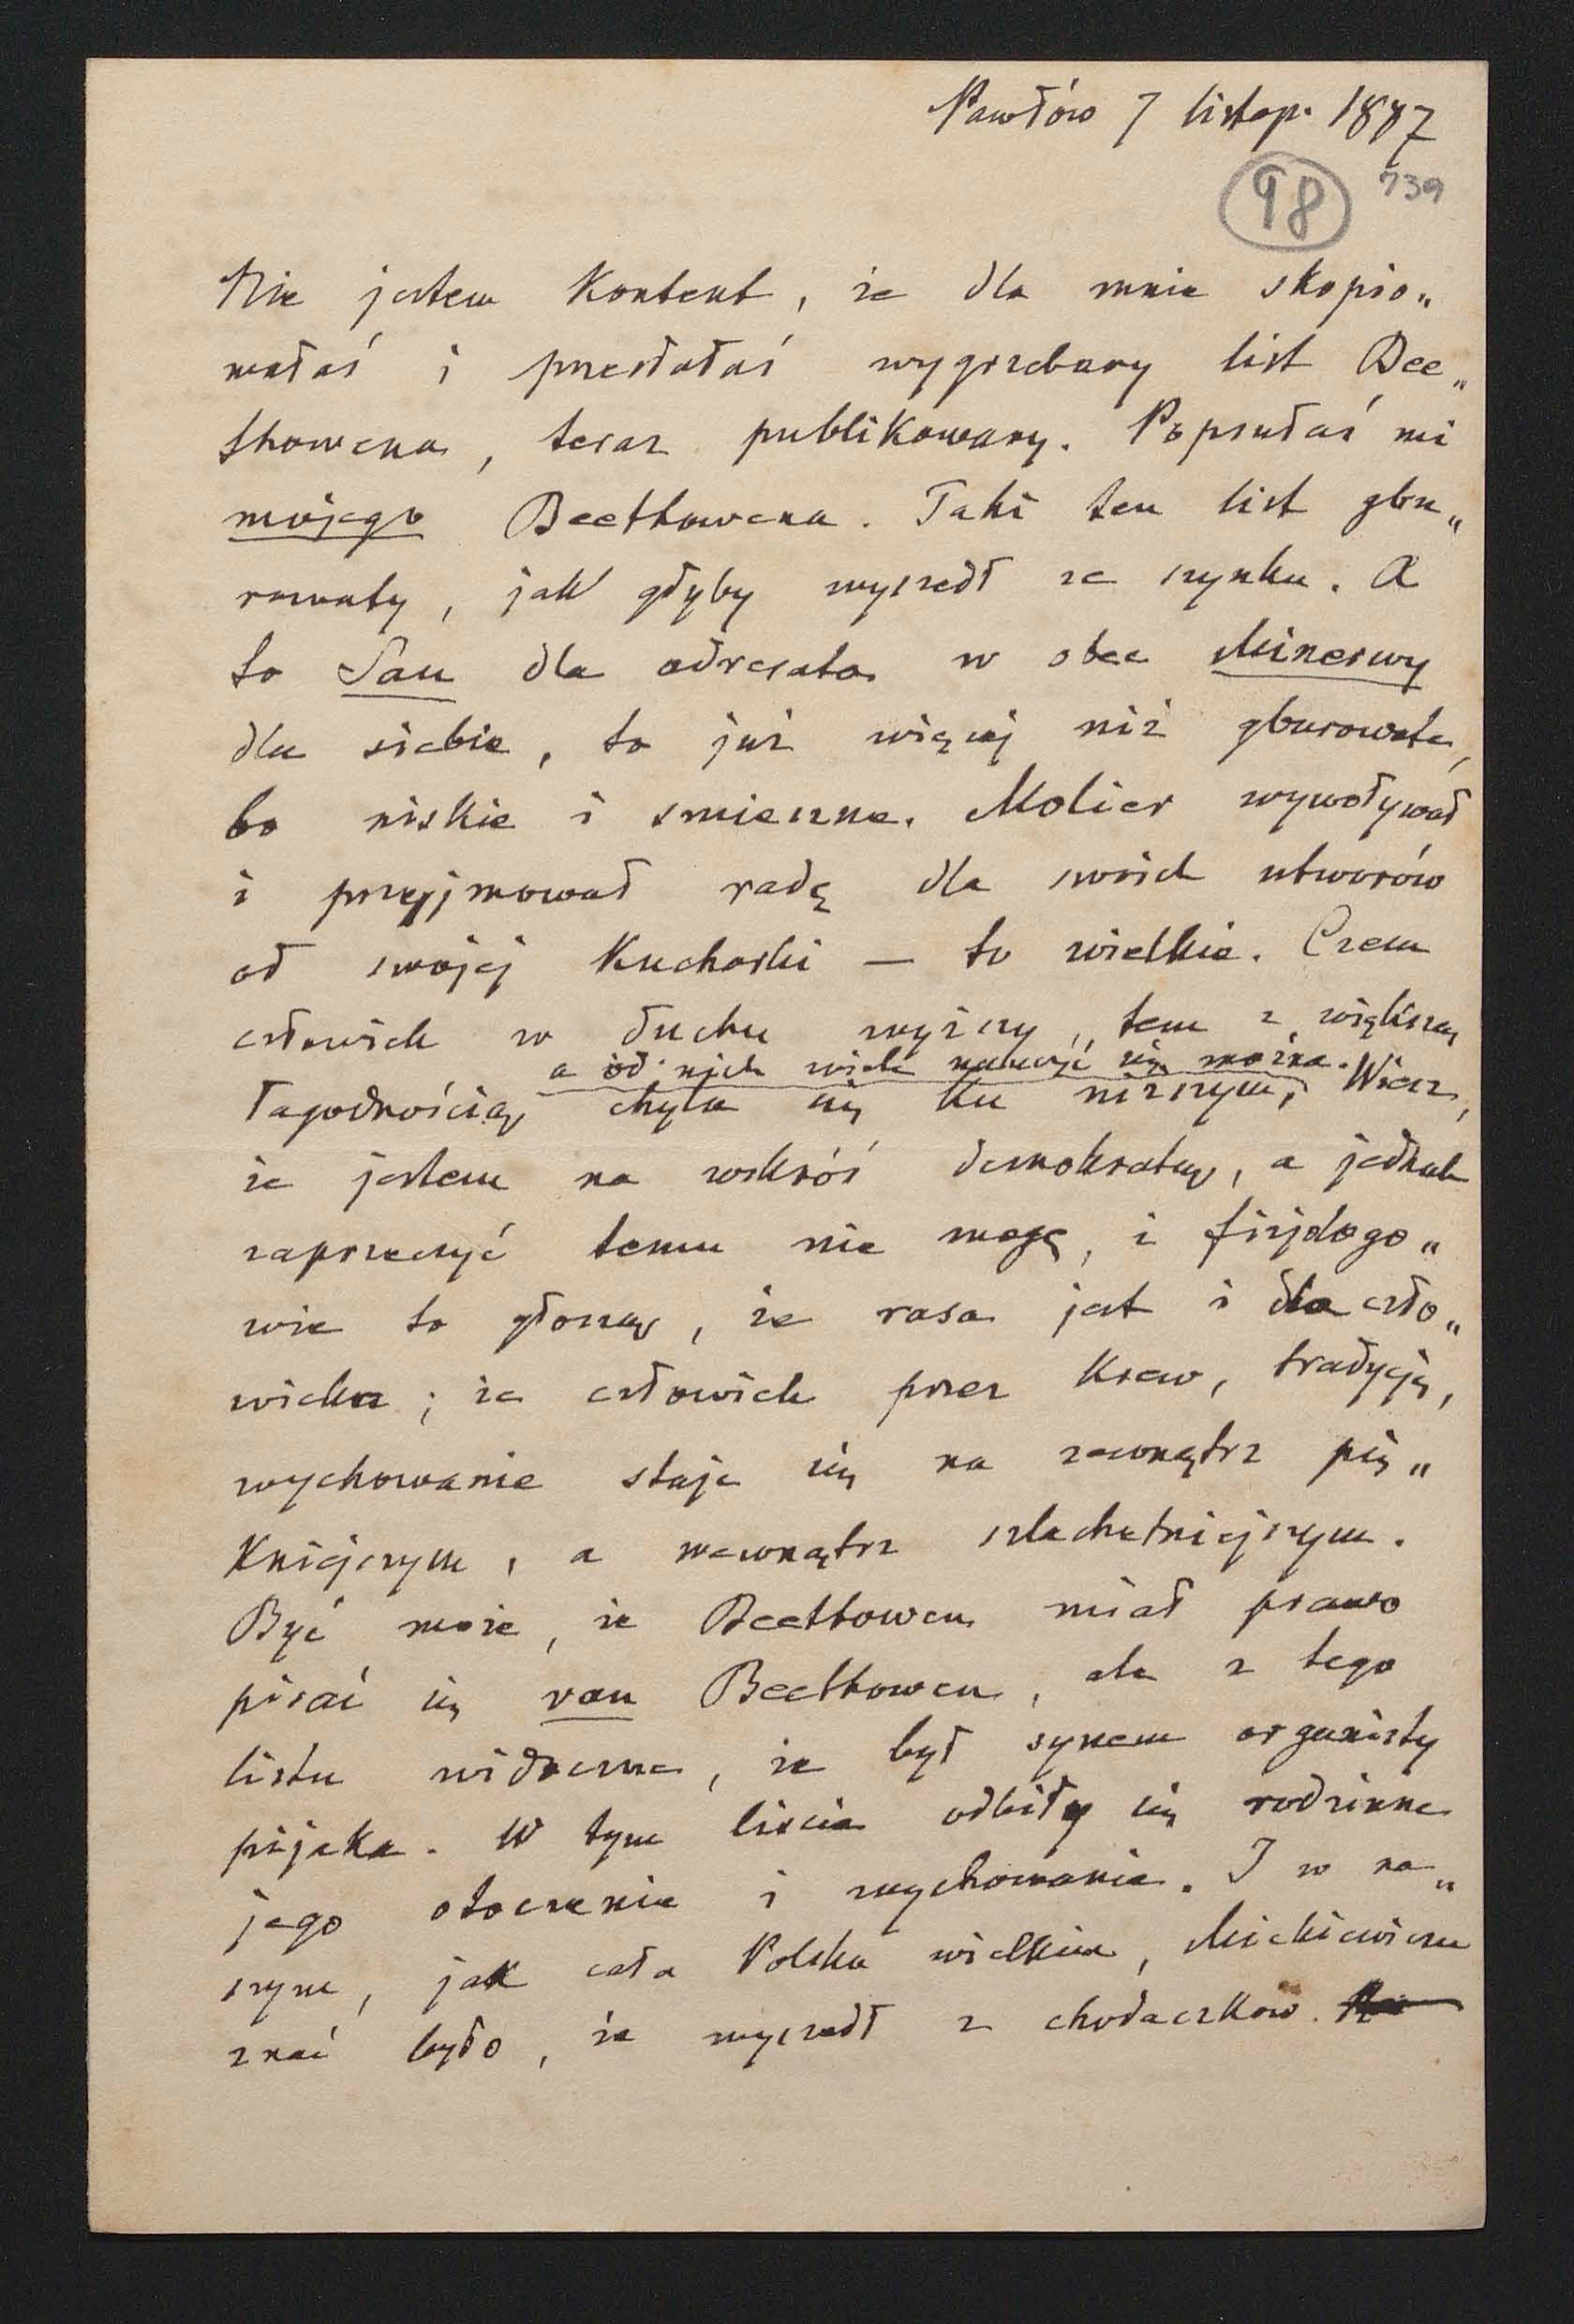 Pawłów 7 listop. 1887
98 739
Nie jestem kontent, że dla mnie skopio„
wałaś i przesłałaś wygrzebany list Bee„
thowena, teraz publikowany. Popsułaś mi
mojego Beethowena. Taki ten list gbu„
rowaty, jak gdyby wyszedł ze szynku. A
to Sau dla adresata w obec Minerwy
dla siebie, to już więcej niż gburowate,
bo niskie i smieszne. Molier wywoływał
i przyjmował radę dla swoich utworów
od swojej kucharki — to wielkie. Czem
człowiek w duchu wyższy, tem z większą
a od nich wiele nauczyć się można.
łagodnością chyla się ku niższym, Wiesz,
że jestem na wskróś demokratą, a jednak
zaprzeczyć temu nie mogę, i fizjologo„
wie to głoszą, że rasa jest i dla czło„
wieka; że człowiek przez krew, tradycję,
wychowanie staje się na zewnątrz pię„
kniejszym, a wewnątrz szlachetniejszym.
Być może, że Beethowen miał prawo
pisać się van Beethowen, ale z tego
listu widoczne, że był synem organisty
pijaka. W tym liscie odbiły się rodzinne
jego otoczenie i wychowanie. I w na„
szym, jak cała Polska wielkim, Mickiewiczu
znać było, że wyszedł z chodaczków.